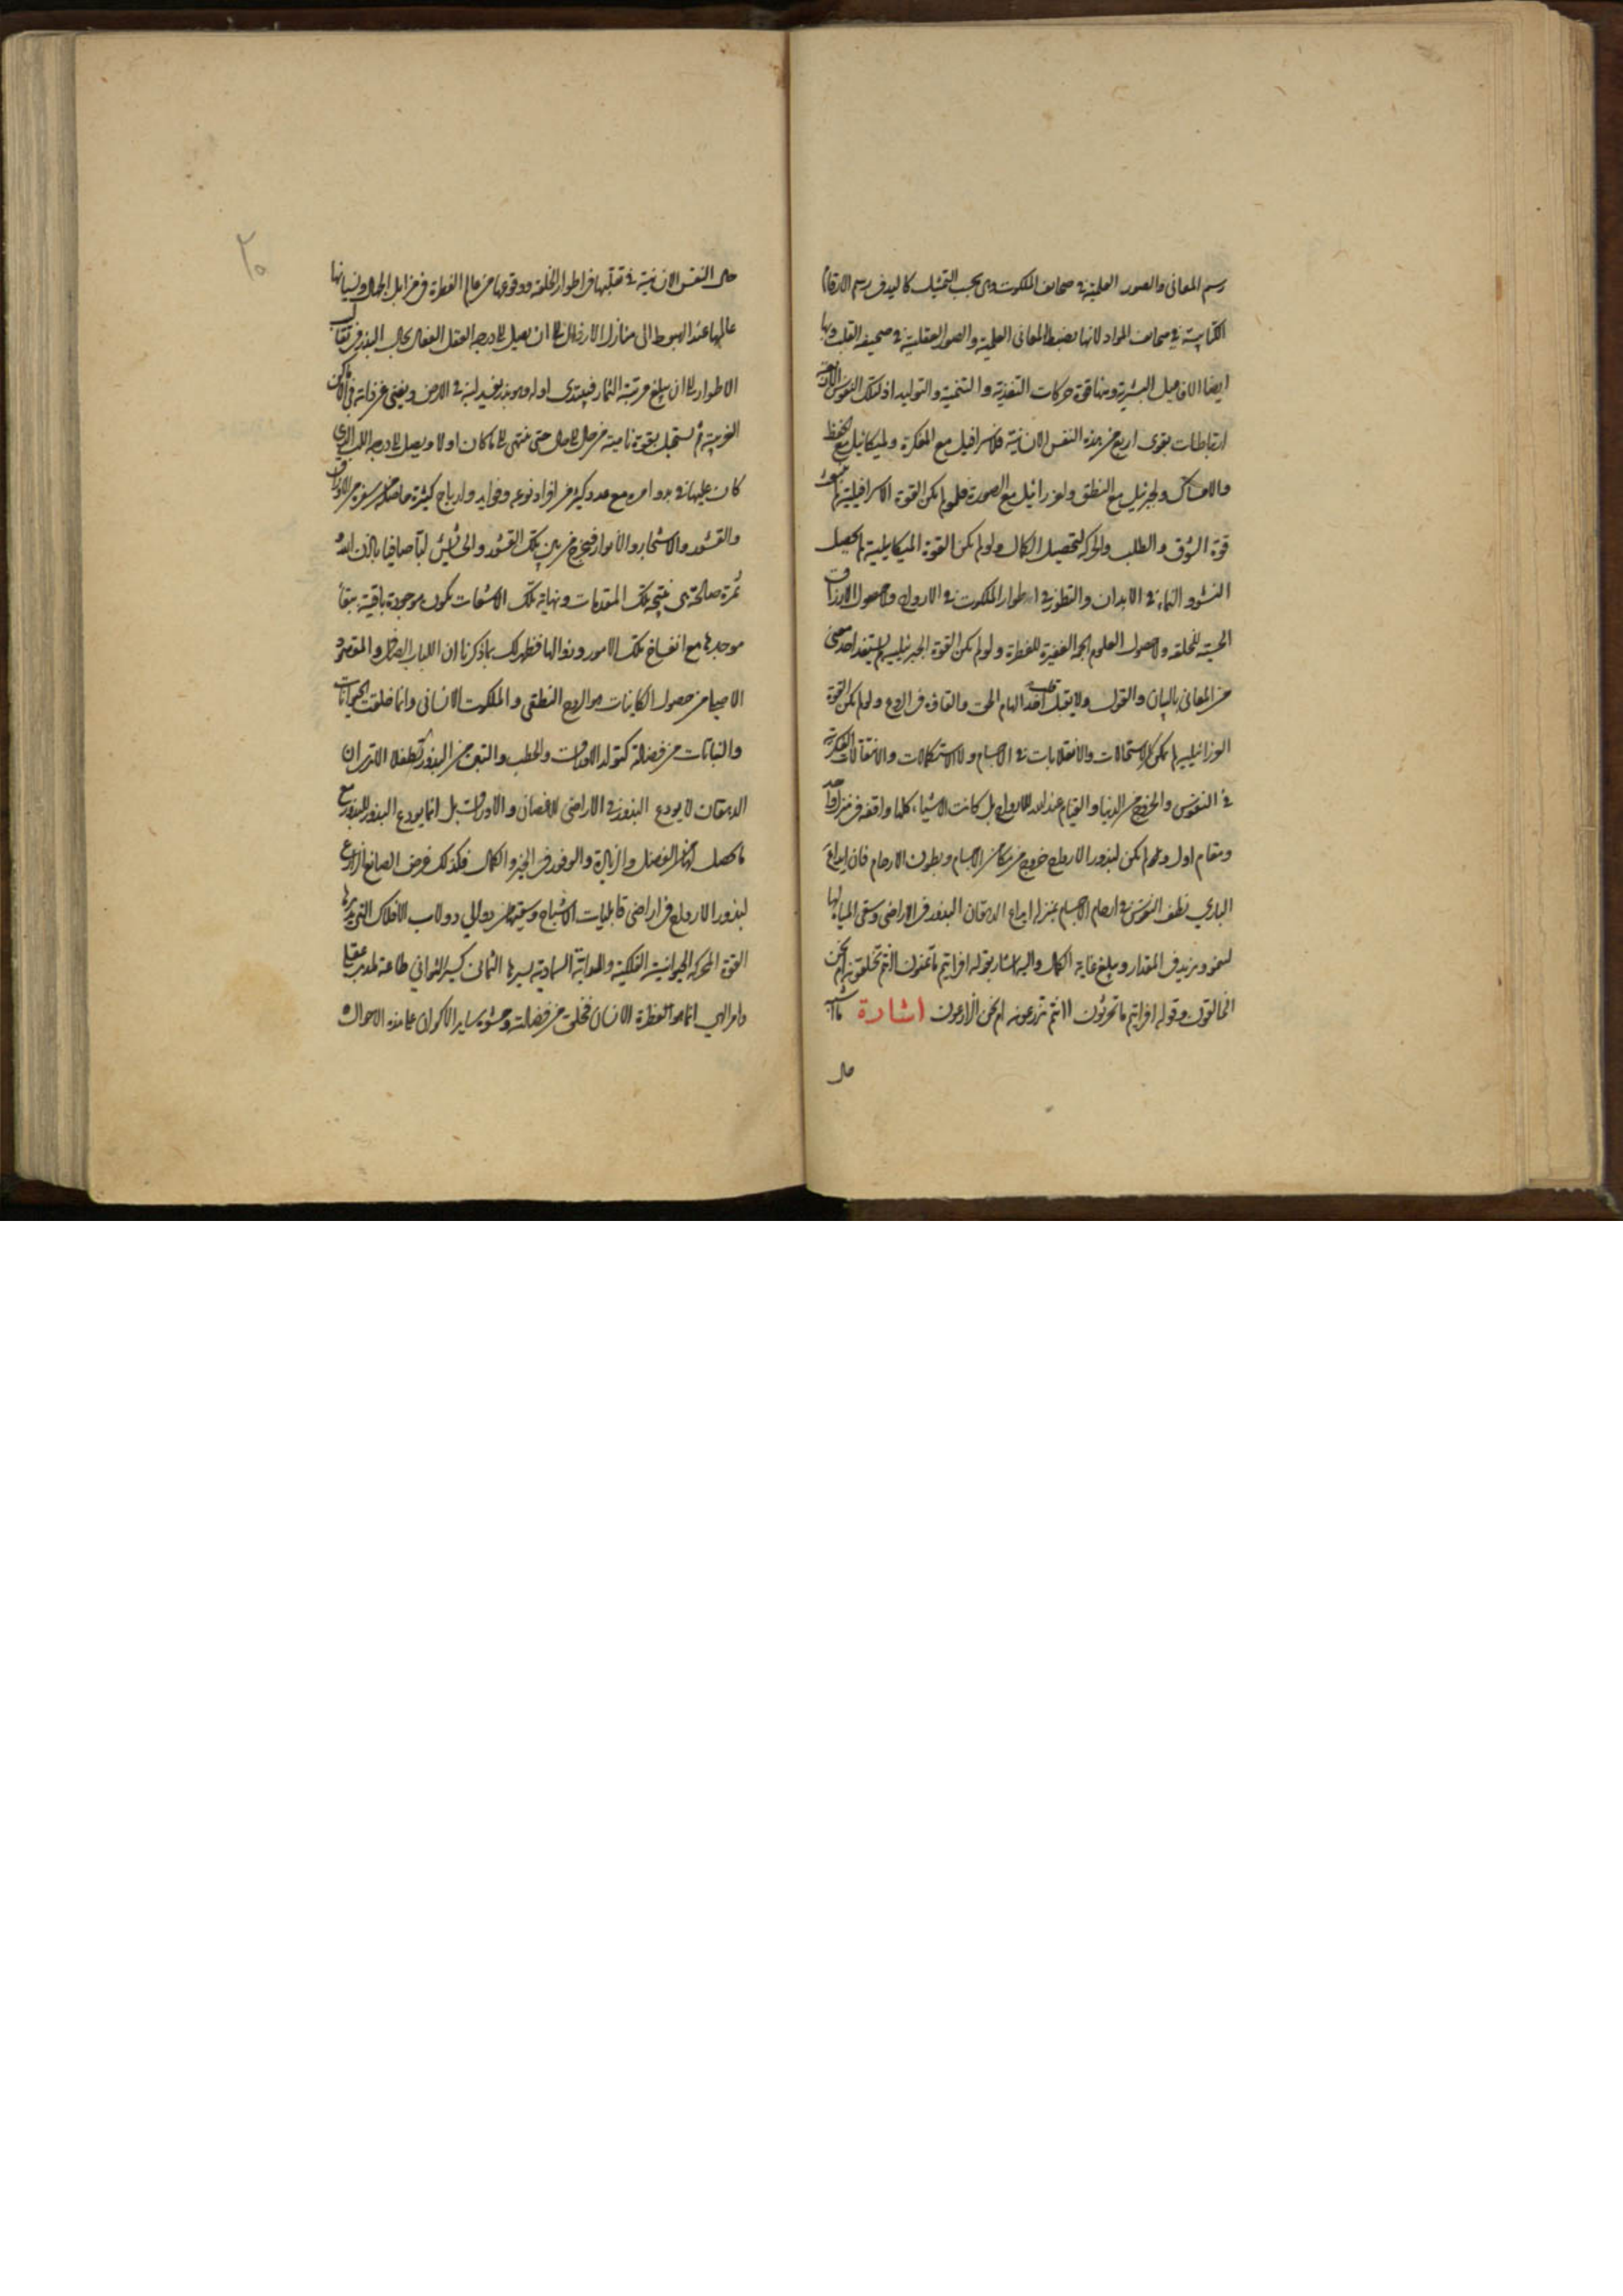 رسم المعانى والصور العلمية فى صحائف الملكوت وهى بحسب التمثيل كاليد فى رسم الارقام
الكتابية فى صحائف المواد لانها بضبط المعانى العلمية والصور العقلية فى صحيفة القلب وبها
ايضا الافاعيل البشرية ومنها قوة حركات التغذية والتنمية والتوليد اذ لتلك النفوس الثلاثة
ارتباطات بقوى اربع من هذه النفس الانسانية فلاسرافيل مع المفكرة ولميكائيل مع الحفظ
والامساك ولجبرئيل مع النطق ولعزرائيل مع الصورة فلو لم يكن القوة الاسرافيلية لم
قوة الشوق والطلب والحركة لتحصيل الكمال ولو لم يكن القوة الميكائيلية لم يحصل
النشوء والنماء فى الابدان والتطور فى اطوار الملكوت فى الارواح ولا حصول الارزاق
الحسية للخلقة ولا حصول العلوم الجمة الغفيرة للفطرة ولو لم يكن القوة الجبرئيلية لم يستفد احد معنى
من المعانى بالبيان والقول ولا يقبل قلب احد الهام الحق والقاءه فى الروع ولو لم يكن القوة
العزرائيلية لم يكن الاستحالات والانقلابات فى الاجسام ولا الاستكمالات والانتقالات الفكرية
فى النفوس والخروج من الدنيا والقيام عند الله للارواح بل كانت الاشياء كلها واقفة فى منزل واحد
ومقام اول ولم يكن لبذور الارواح خروج من مكامن الاجسام وبطون الارحام فان ايداع
البارى نطف النفوس فى ارحام الاجسام بمنزلة ايداع الدهقان البذور فى الاراضى وسقى المياه لها
لتنمو ويزيد فى المقدار ويبلغ غاية الكمال واليه اشار بقوله افرايتم ما تمنون اانتم تخلقونه ام نحن
الخالقون وقوله افرايتم ما تحرثون اانتم تزرعونه ام نحن الزارعون اشارة ما اشبه
حال
٢٠
حال النفس الانسانية فى تقلبها فى اطوار الخلقة ووقوعها من عالم الفطرة فى مزابل الجهال ونسيانها
عالمها عند الهبوط الى منازل الارذال الى ان يصل الى درجة العقل الفعال بحال البذر فى تقلب
الاطوار الى ان يبلغ مرتبة الثمار فيبتدى اوله وهو بذر يفسد لبه فى الارض ويفنى عن ذاته فى الاماكن
الغريبة ثم يستحيل بقوة نامية من حال الى حال حتى ينتهى الى ما كان اولا ويصل الى درجة اللب الذى
كان عليها فى بدو امره مع عدد كثير من افراد نوعه وفوايد وارباح كثيرة حاصلة من سفره من الاوراق
والقشور والاشجار والانوار فيخرج من بين تلك القشور والحشايش لبا صافيا باذن الله
ثمرة صالحة هى نتيجة تلك المقدمات ونهاية تلك الانتقالات تكون موجودة باقية ببقاء
موجدها مع انفساخ تلك الامور وزوالها فظهر لك بما ذكرنا ان اللباب الاصلى والمقصود
الاصلى من حصول الكاينات هو الروح النطقى والملكوت الانسانى وانما خلقت الحيوانات
والنباتات من فضالة كتولد الاوراق والحطب والتبن من البذور تطفلا الا ترى ان
الدهقان لا يودع البذور فى الاراضى للاغصان والاوراق بل انما يودع البذور للبذور مع
ما يحصل لها من الفضل والزيادة والوفور فى الخير والكمال فكذلك غرض الصانع الزارع
لبذور الارواح فى اراضى قابليات الاشباح وسقيها من دوالى دولاب الافلاك التى يديرها
القوة المحركة الحيوانية الفلكية والهداية السماوية يسيرها الثمانى كسير الثوانى طاعة لمدبر عقلى
وامر الهى انما هو الفطرة الانسان فخلق من فضالته وحشوه ساير الاكوان على هذه الاحوال